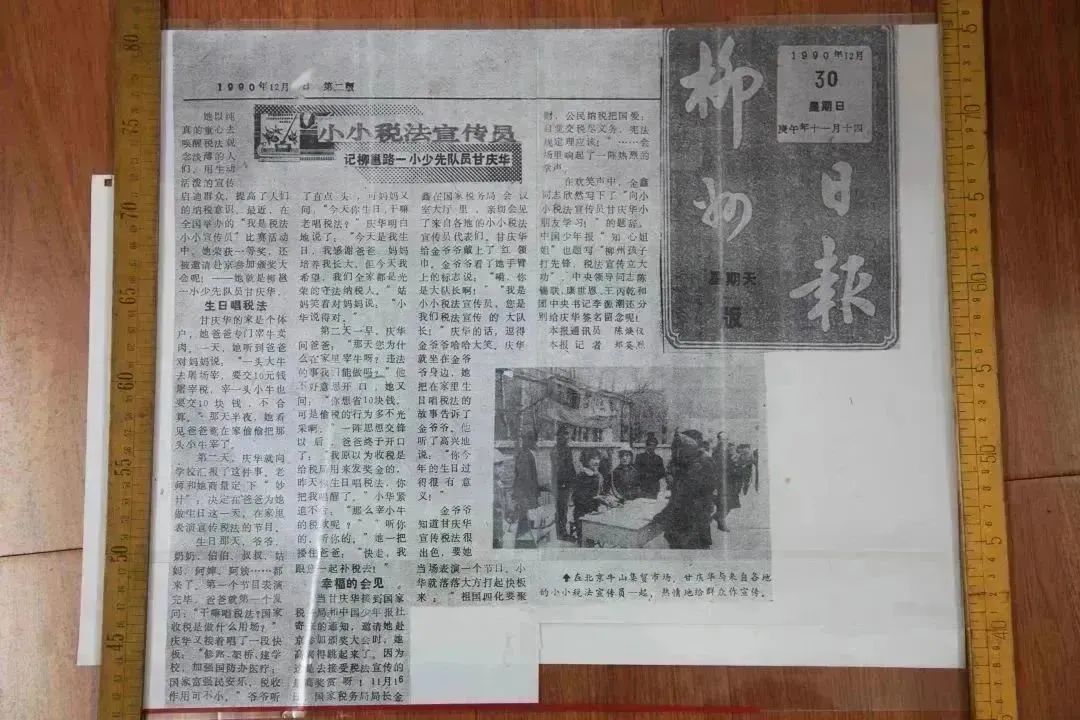 1990年12月 日 第二版
小小税法宣传员
记柳邕路一小少先队员甘庆华
她以纯
真的童心去
唤醒税法观
念淡薄的人
们,用生动
活泼的宣传
启迪群众,提高了人们
的纳税意识。最近,在
全国举办的“我是税法
小小宣传员”比赛活动
中,她荣获一等奖,还
被邀请赴京参加颁奖大
会呢!——她就是柳邕
一小少先队员甘庆华。
生日唱税法
甘庆华的家是个体
户,她爸爸专门宰牛卖
肉。一天,她听到爸爸
对妈妈说,“一头大牛
去屠场宰,要交10元钱
屠宰税,宰一头小牛也
要交10块钱,不合
算。”那天半夜,她看
见爸爸在家偷偷把那
头小牛宰了。
第二天,庆华就向
学校汇报了这件事,老
师和她商量定下“妙
计”:决定在爸爸为她
做生日这一天,在家里
表演宣传税法的节目。
生日那天,爷爷、
奶奶、伯伯、叔叔、姑
妈、阿婶、阿姨……都
来了。第一个节目表演
完毕,爸爸就第一个发
问:“干嘛唱税法?国家
收税是做什么用场?”
庆华又接着唱了一段快
板:“修路、架桥、建学
校,加强国防办医疗;
国家富强民安乐,税收
作用可不小。”爷爷听
了直点头,可妈妈又
问:“今天你生日,干嘛
老唱税法?”庆华明白
地说了:“今天是我生
日,我感谢爸爸、妈妈
培养我长大,但今天我
希望,我们全家都是光
荣的守法纳税人。”姑
妈笑着对妈妈说,“小
华说得对。”
第二天一早,庆华
问爸爸:“那天您为什
么在家里宰牛呀?违法
的事我可能做吗?”他
不好意思开口,她又
问:“你想省10块钱,
可是偷税的行为多不光
采啊!”一阵思想交锋
以后,爸爸终于开口
了:“我原以为收税是
给税局用来发奖金的,
昨天你生日唱税法,你
把我唱醒了。”小华紧
追不舍:“那么宰小牛
的税款呢?”“听你
的,听你的。”她一把
搂住爸爸:“快走,我
跟您一起补税去!”
幸福的会见
当甘庆华接到国家
税务局和中国少年报社
寄来的通知,邀请她赴
京参加颁奖大会时,她
高兴得跳起来了。因为
这是去接受税法宣传的
最高奖赏呀!11月16
日,国家税务局局长金
鑫在国家税务局会议
室大厅里,亲切会见
了来自各地的小小税法
宣传员代表们。甘庆华
给金爷爷戴上了红领
巾,金爷爷看了她手臂
上的标志说,“嗬,你
是大队长啊!”“我是
小小税法宣传员,您是
我们税法宣传的大队
长!”庆华的话,逗得
金爷爷哈哈大笑。庆华
就坐在金爷
爷身边,她
把在家里生
日唱税法的
故事告诉了
金爷爷。他
听了高兴地
说:“你今
年的生日过
得很有意
义!”
金爷爷
知道甘庆华
宣传税法很
出色,要她
当场表演一个节目。小
华就落落大方打起快板
来:“祖国四化要聚
财,公民纳税把国爱;
自觉交税尽义务,宪法
规定理应该!”……会
场里响起了一阵热烈的
掌声。
在欢笑声中,金鑫
同志欣然写下了“向小
小税法宣传员甘庆华小
朋友学习!”的题辞。
中国少年报“知心姐
姐”也题写“柳州孩子
打先锋,税法宣传立大
功”。中央领导同志陈
锡联、康世恩、王丙乾和
团中央书记李源潮还分
别给庆华签名留念呢!
本报通讯员 陈焕仪
本报记者
柳州日報
星期天
版
1990年12月
30
星期日
庚午年十一月十四
⬆在北京牛山集贸市场,甘庆华与来自各地
的小小税法宣传员一起,热情地给群众作宣传。